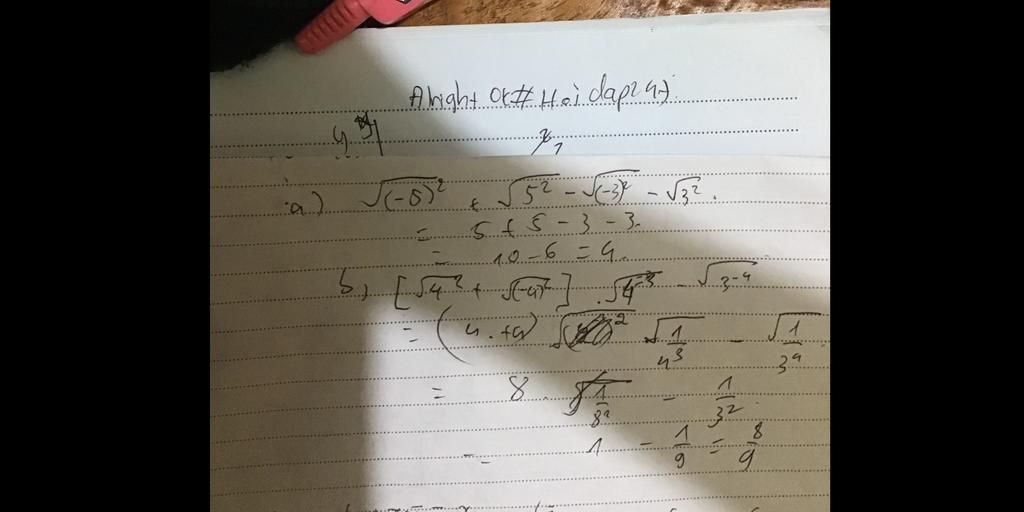 Alright Ok# Hoidap247
a) √(-5)² + √5² - √(-3)² - √3².
= 5 + 5 - 3 - 3.
= 10 - 6 = 4.
b, [√4² + √(-4)²] . √4⁻³ - √3⁻⁴
= (4 + 4) √1/4³ - √1/3⁴
= 8 . 1/8 - 1/3²
= 1 - 1/9 = 8/9